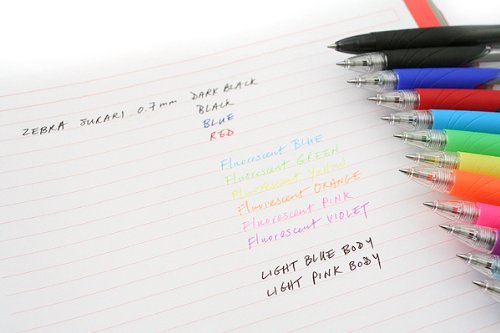 ZEBRA SURARI 0.7mm DARK BLACK
BLACK
BLUE
RED
Fluorescent BLUE
Fluorescent GREEN
Fluorescent Yellow
Fluorescent ORANGE
Fluorescent PINK
Fluorescent VIOLET
LIGHT BLUE BODY
LIGHT PINK BODY